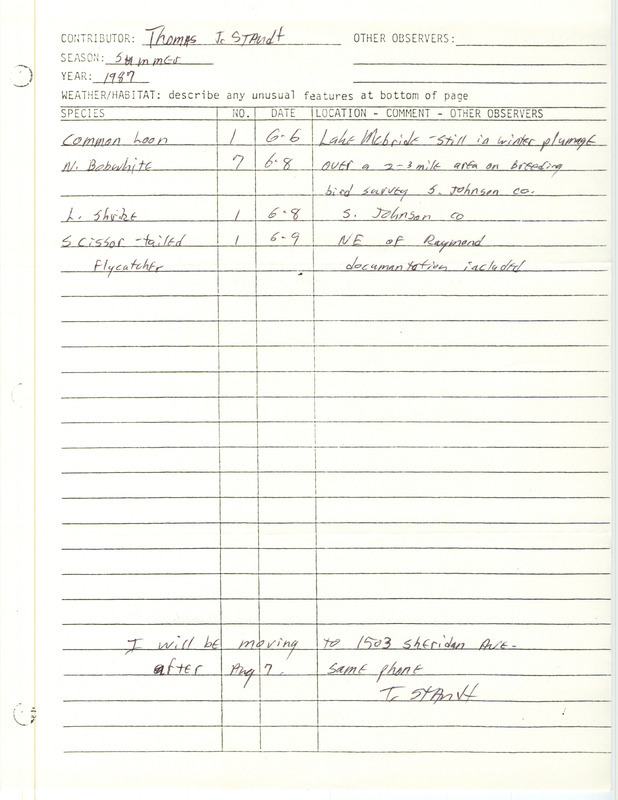 CONTRIBUTOR: Thomas J. Staudt OTHER OBSERVERS:
SEASON: Summer
YEAR: 1987
WEATHER/HABITAT: describe any unusual features at bottom of page
SPECIES NO. DATE LOCATION - COMMENT - OTHER OBSERVERS
Common Loon 1 6-6 Lake McBride - still in winter plumage
N. Bobwhite 7 6-8 over a 2-3 mile area on breeding
bird survey S. Johnson co.
L. Shrike 1 6-8 S. Johnson co
Scissor-tailed 1 6-9 NE of Raymond
Flycatcher documantation included
I will be moving to 1503 Sheridan Ave.
after Aug 7. same phone
T. Staudt